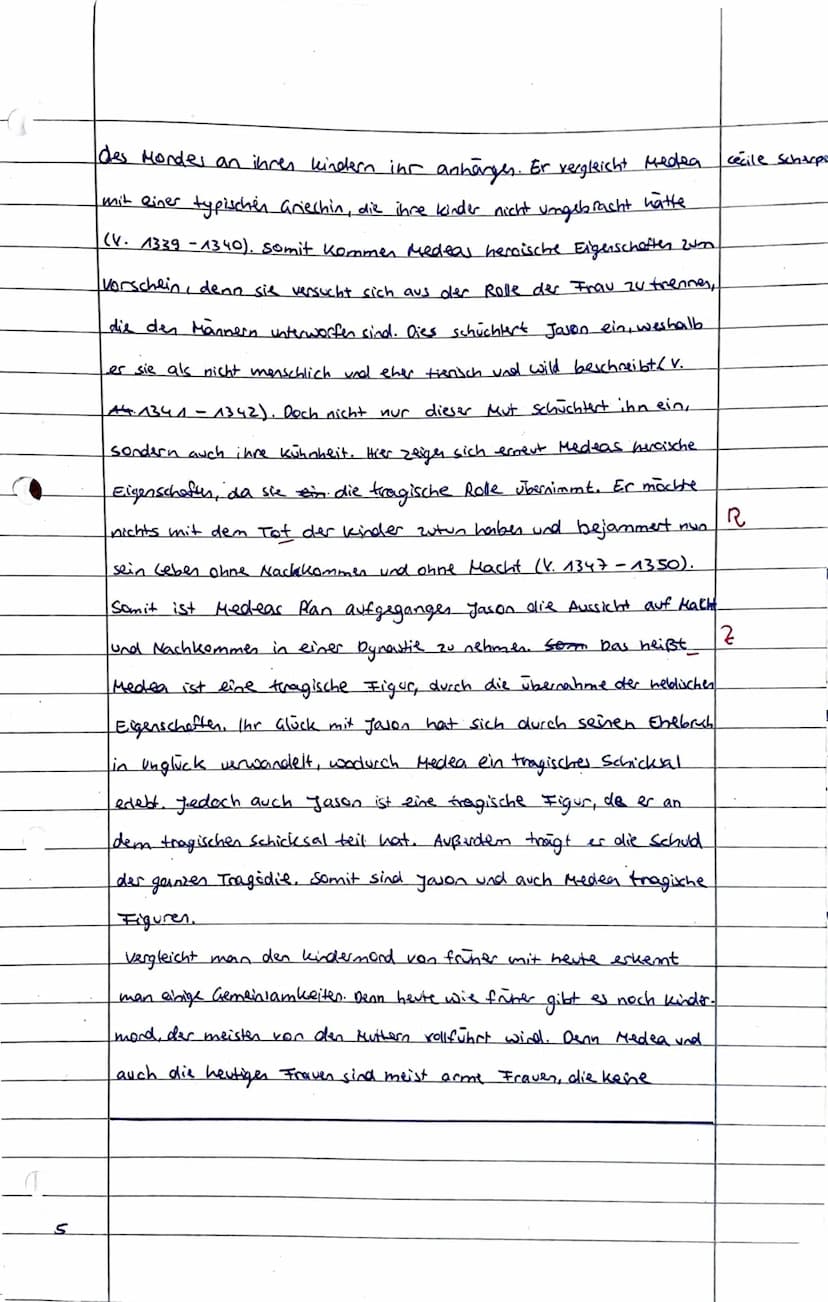 des Mordes an ihren Kindern ihr anhängen. Er vergleicht Medea
cécile
mit einer typischen Griechin, die ihre Kinder nicht umgebracht hätte
(V. 1339 - 1340). Somit kommen Medeas heroische Eigenschaften zum
Vorschein, denn sie versucht sich aus der Rolle der Frau zu trennen,
die den Männern unterworfen sind. Dies schüchtert Jason ein, weshalb
er sie als nicht menschlich und eher tierisch und wild beschreibt (V.
1341 - 1342). Doch nicht nur dieser Mut schüchtert ihn ein,
sondern auch ihre Kühnheit. Hier zeigen sich erneut Medeas heroische
Eigenschaften, da sie ein die tragische Rolle übernimmt. Er möchte
nichts mit dem Tot der Kinder zutun haben und bejammert nun
R
sein Leben ohne Nachkommen und ohne Macht (V. 1347 - 1350).
Somit ist Medeas Plan aufgegangen Jason die Aussicht auf Macht
und Nachkommen in einer Dynastie zu nehmen. Som Das heißt
Z
Medea ist eine tragische Figur, durch die Übernahme der heldischen
Eigenschaften. Ihr Glück mit Jason hat sich durch seinen Ehebruch
in Unglück verwandelt, wodurch Medea ein tragisches Schicksal
erlebt. Jedoch auch Jason ist eine tragische Figur, da er an
dem tragischen Schicksal teil hat. Außerdem trägt er die Schuld
der ganzen Tragödie. Somit sind Jason und auch Medea tragische
Figuren.
Vergleicht man den Kindermord von früher mit heute erkennt
man einige Gemeinsamkeiten. Denn heute wie früher gibt es noch Kinder-
mord, der meisten von den Müttern vollführt wird. Denn Medea und
auch die heutigen Frauen sind meist arme Frauen, die keine
5